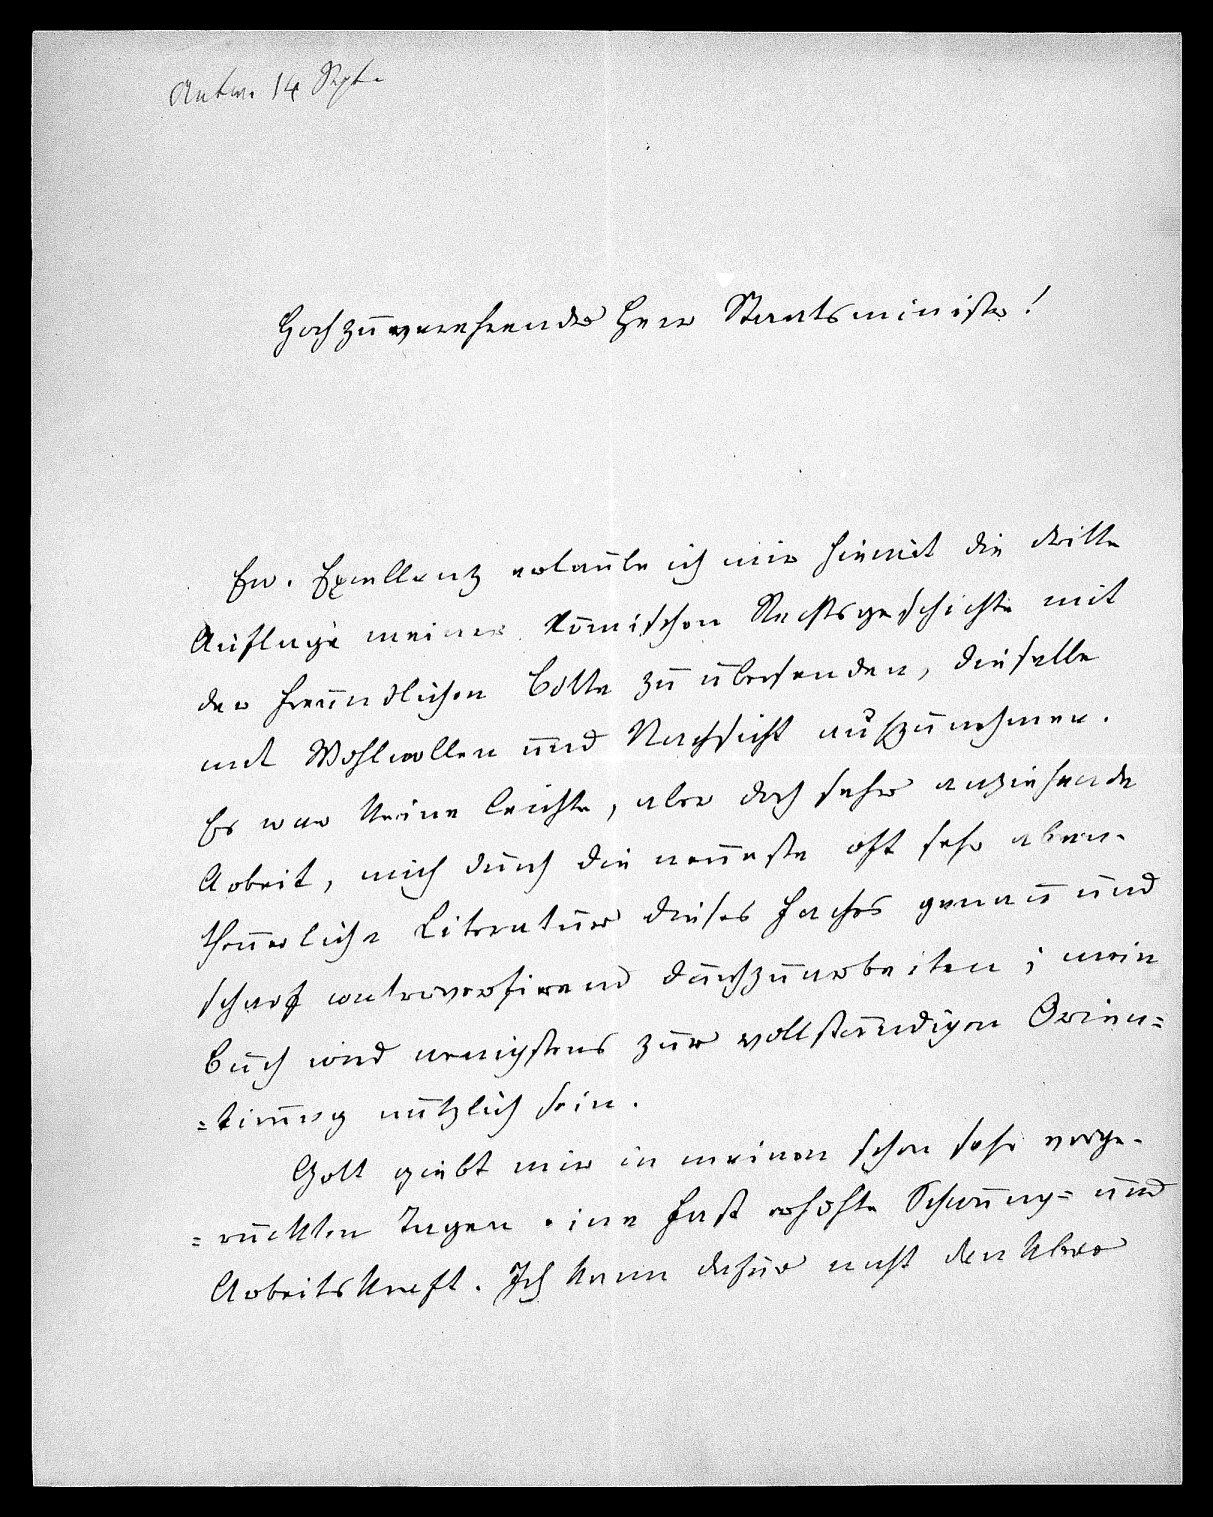 Antw. 14 Sept.
Hochzuverehrender Herr Staatsminister!
Ew. Excellenz erlaube ich mir hiemit die dritte
Auflage meiner Römischen Rechtsgeschichte mit
der freundlichen Bitte zu übersenden, dieselbe
mit Wohlwollen und Nachsicht aufzunehmen.
Es war keine leichte, aber doch sehr anziehende
Arbeit, mich durch die neueste oft sehr aben-
theuerliche Literatur dieses Faches genau und
scharf controversirend durchzuarbeiten; mein
Buch wird wenigstens zur vollständigen Orien=
=tirung nützlich sein.
Gott giebt mir in meinen schon sehr vorge-
=rückten Tagen eine fast erhöhte Schwung= und
Arbeitskraft. Ich kann dafür nicht dankbar